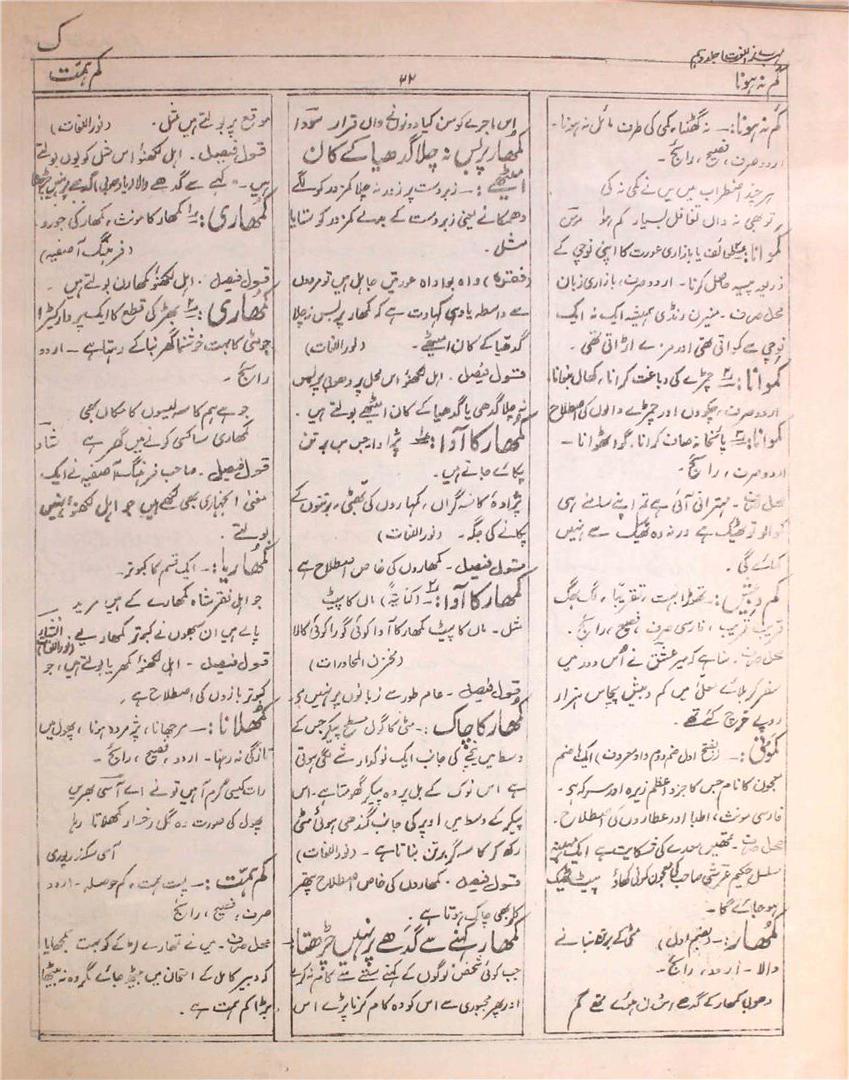 ک
مہذب اللغات جلد دہم
کم نہ ہونا
۲۲
کم ہمّت
کم نہ ہونا :۔ نہ گھٹنا، کمی کی طرف مائل نہ ہونا۔
اردو صرف، فصیح، رائج۔
ہر چند اضطراب میں میں نے کمی نہ کی
تو بھی نہ واں تغافل بسیار کم ہوا میرؔ
کموانا :۔ طوائف یا بازاری عورت کا اپنی نوچی کے
ذریعہ پیسہ حاصل کرنا۔ اردو صرف، بازاری زبان
محل صرف۔ منیرن رنڈی ہمیشہ ایک نہ ایک
نوچی سے کمواتی تھی اور مزے اڑاتی تھی۔
کموانا :۔ چمڑے کی دباغت کرانا، کھال بنوانا،
اردو صرف، چکووں اور چمڑے والوں کی اصطلاح
کموانا :۔ پائخانہ صاف کرانا، گو اٹھوانا۔
اردو صرف، رائج۔
محل صرف۔ مہترانی آئی ہے تم اپنے سامنے ہی
کموالو تو ٹھیک ہے ورنہ وہ ٹھیک سے نہیں
کمائے گی۔
کم و بیش :۔ تھوڑا بہت، تقریباً، لگ بھگ
قریب قریب، فارسی صرف، فصیح، رائج۔
محل صرف۔ سنا ہے کہ میر عشق نے اُس دور میں
سفر کربلائے معلیٰ میں کم و بیش پچاس ہزار
روپے خرچ کئے تھے۔
کمونی :۔ (بفتح اول ضم دوم و واو معروف) ایک قسم
معجون کا نام جس کا جزو اعظم زیرہ اور سرکہ ہو۔
فارسی مونث، اطبا اور عطاروں کی اصطلاح۔
محل صرف۔ تمھیں معدے کی شکایت ہے ایک مہینہ
مسلسل حکیم قرشی صاحب کی معجون کمونی کھاؤ پیٹ ٹھیک
ہو جائے گا۔
کمھار :۔ (بضم اول) مٹی کے برتن بنانے
والا۔ اردو، رائج۔
دھوبی کمھار کے گدھے اس ان ہوئے تھے گم
اس ماجرے کو سن کیا دونوں نے واں قرار سوداؔ
کمھار پر بس نہ چلا گدھیا کے کان
اینٹھے :۔ زبردست پر زور نہ چلا کمزور کو لگے
دھمکانے یعنی زبردست کے بدلے کمزور کو ستایا
مثل۔
(فقرہ) واہ بوا واہ عورتیں جاہل ہیں تو مردوں
سے واسطہ یا وہی کہاوت ہے کہ کمھار پر بس نہ چلا
گدھیا کے کان اینٹھے۔ (نوراللغات)
قول فیصل۔ اہل لکھنؤ اس محل پر دھوبی پر بس
نہ چلا گدھی یا گدھیا کے کان اینٹھے بولتے ہیں۔
کمھار کا آوا :۔ پژاوا جس میں برتن
پکائے جاتے ہیں۔
پژاوۂ کاسہ گراں، کمہاروں کی بھٹی، برتنوں کے
پکانے کی جگہ۔ (نوراللغات)
قول فیصل۔ کمھاروں کی خاص اصطلاح ہے
کمھار کا آوا :۔ (کنایۃً) ماں کا پیٹ
مثل۔ ماں کا پیٹ کمھار کا آوا کوئی گورا کوئی کالا
(مخزن المحاورات)
قول فیصل۔ عام طور سے زبانوں پر نہیں ہے۔
کمھار کا چاک :۔ مٹی کا گول مسطح پیکر جس کے
وسط میں نیچے کی جانب ایک نوکدار شے لگی ہوتی
ہے اس نوک کے بل پر وہ پیکر گھومتا ہے۔ اس
پیکر کے وسط میں اوپر کی جانب گندھی ہوئی مٹی
رکھ کر کاسہ گر برتن بناتا ہے۔ (نوراللغات)
قول فیصل۔ کمھاروں کی خاص اصطلاح پتھر
کا بھی چاک ہوتا ہے۔
کمھار کہنے سے گدھے پر نہیں چڑھتا
جب کوئی شخص لوگوں کے کہنے سننے سے کام نہ کرے
اور پھر مجبوری سے اس کو وہ کام کرنا پڑے اس
موقع پر بولتے ہیں مثل۔ (نوراللغات)
قول فیصل۔ اہل لکھنؤ اس مثل کو یوں بولتے
ہیں۔ کہے سے گدھے والا (یا دھوبی) گدھے پر نہیں چڑھتا
کمھاری :۔ کمھار کا مونث، کمھار کی جورو
(فرہنگ آصفیہ)
قول فیصل۔ اہل لکھنؤ کمھارن بولتے ہیں۔
کمھاری :۔ بھڑ کی قطع کا ایک پردار کیڑا
جو مٹی کا بہت خوشنما گھر بنا کے رہتا ہے۔ اردو
رائج۔
جو ہے ہم کاسہ لیسوں کا مکاں بھی
کمھاری سا کسی کونے میں گھر ہے شادؔ
قول فیصل۔ صاحب فرہنگ آصفیہ نے ایک
معنی انجہاری بھی لکھے ہیں جو اہل لکھنؤ نہیں
بولتے۔
کمھاریا :۔ ایک قسم کا کبوتر۔
جو اہل نقر شاہ کمھارے کے ہیں مرید
پالے ہیں ان سبھوں نے کبوتر کمھاریے۔ انشاؔ
(نوراللغات)
قول فیصل۔ اہل لکھنؤ کمھریا بولتے ہیں، جو
کبوتر بازوں کی اصطلاح ہے۔
کمھلانا :۔ مرجھانا، پژمردہ ہونا، پھول میں
تازگی نہ رہنا۔ اردو، فصیح، رائج۔
رات کیسی گرم آہیں تو نے اے آسی بھریں
پھول کی صورت وہ گل رخسار کمھلاتا رہا
آسی سکندرپوری
کم ہمّت :۔ پست ہمت، کم حوصلہ۔ اردو
صرف، فصیح، رائج
محل صرف۔ میں نے تمھارے لڑکے کو بہت سمجھایا
کہ دبیر کامل کے امتحان میں بیٹھ جائے مگر وہ نہ بیٹھا
بڑا کم ہمت ہے۔